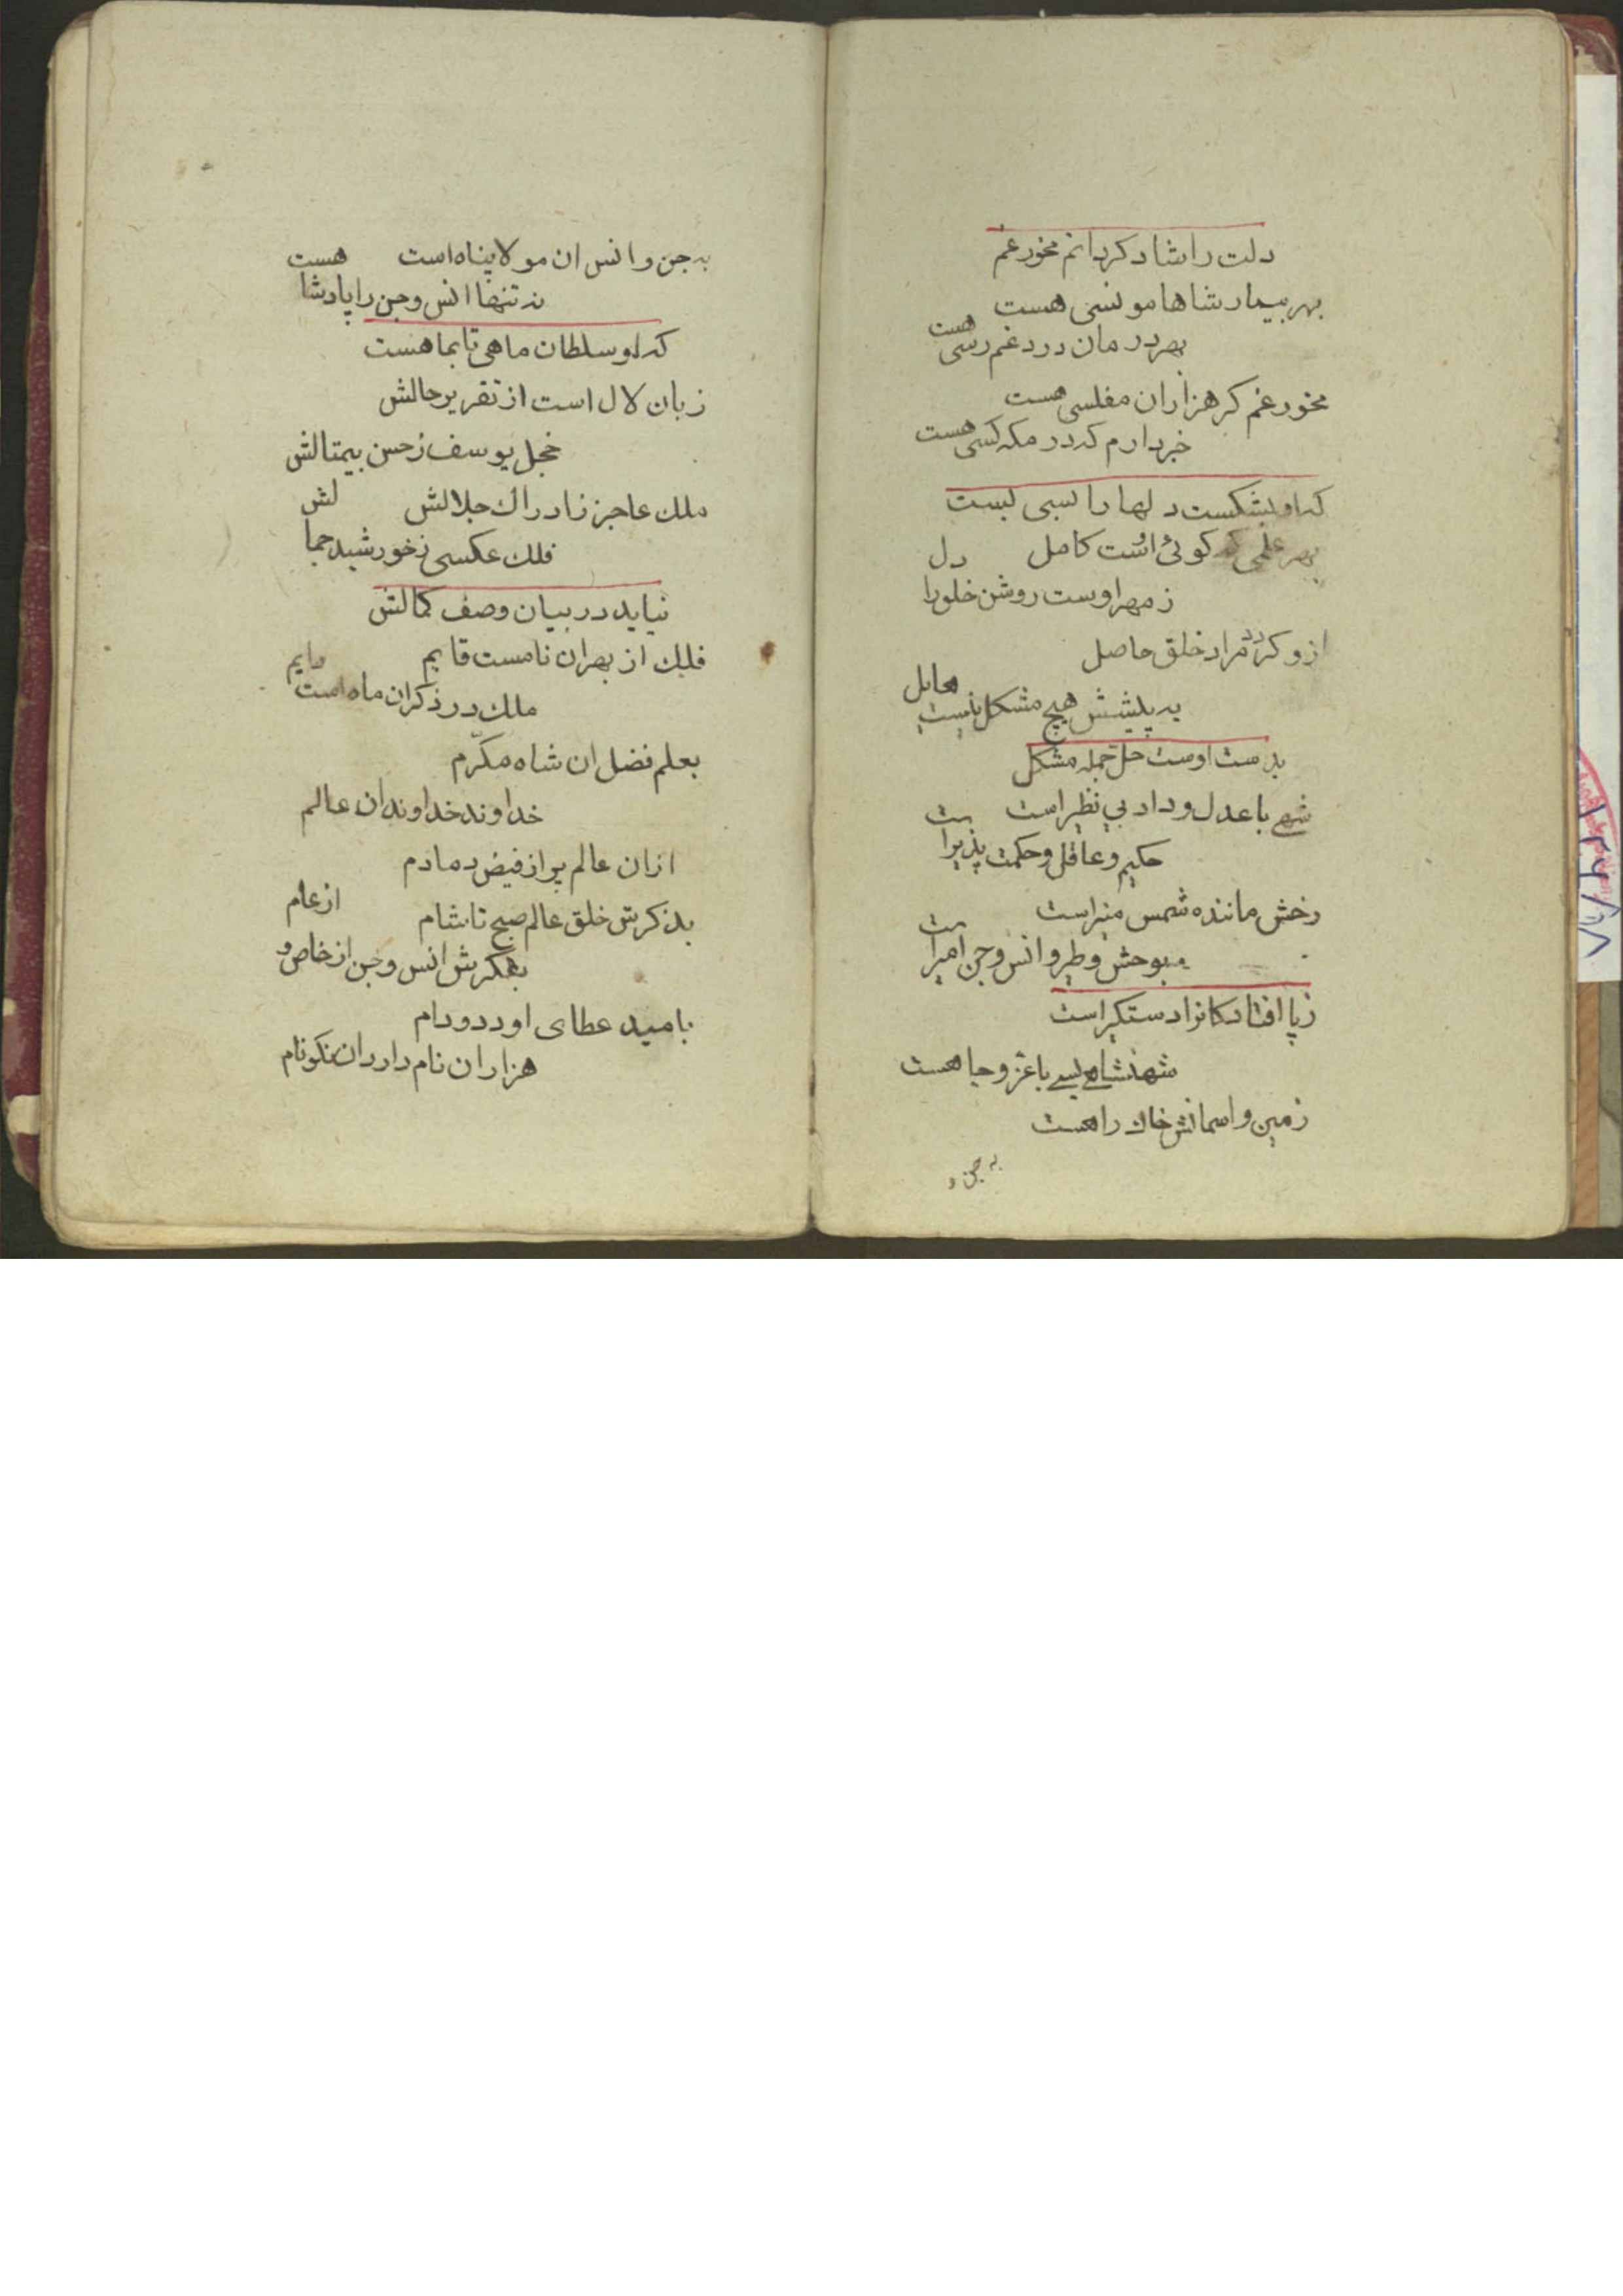 دلت را شاد کردانم مخور غم
بهر بیمار شاها مونسی هست
بهر درمان درد غم رسی هست
مخور غم کر هزاران مفلسی هست
خبردارم که در مکه کسی هست
که او بشکست دلها را بسی بست
بهر علمی که کوئی اوست کامل
ز مهر اوست روشن خلورا دل
ازو کردد مراد خلق حاصل
به پیشش هیچ مشکل نیست هایل
بدست اوست حلّ جمله مشکل
شهے با عدل و داد بی نظیر است
حکیم و عاقل و حکمت پذیر است
رخش ماننده شمس منیر است
بوحش و طیر و انس و جن امیر است
ز پا افتادکانرا دستکیر است
شهنشاهے بسے با عزّ و جاهست
زمین و اسمانش خاك راهست
به جن و
به جن و انس ان مولا پناه است
نه تنها انس و جن را پادشاهست
که او سلطان ماهی تا بماهست
زبان لال است از تقریر حالش
خجل یوسف ز حسن بیمثالش
ملك عاجز ز ادراك جلالش
فلك عکسی ز خورشید جمالش
نیاید در بیان وصف کمالش
فلك از بهر ان نامست قایم
ملك در ذکر ان ماه است دایم
بعلم فضل ان شاه مکرّم
خداوند خداوندان عالم
ازان عالم پر از فیض دمادم
بذکرش خلق عالم صبح تا شام
بفکرش انس و جن از خاص و از عام
بامید عطای او دد و دام
هزاران نام دارد ان نکونام